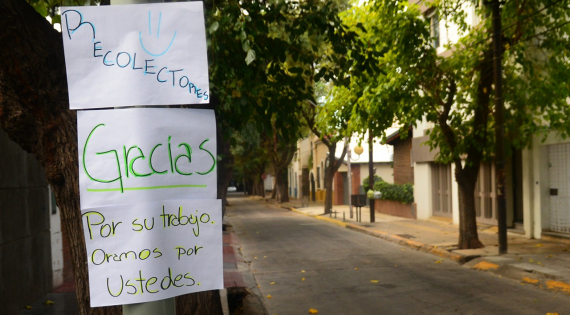 RECOLECTORES
Gracias
Por su trabajo.
Oramos por
Ustedes.